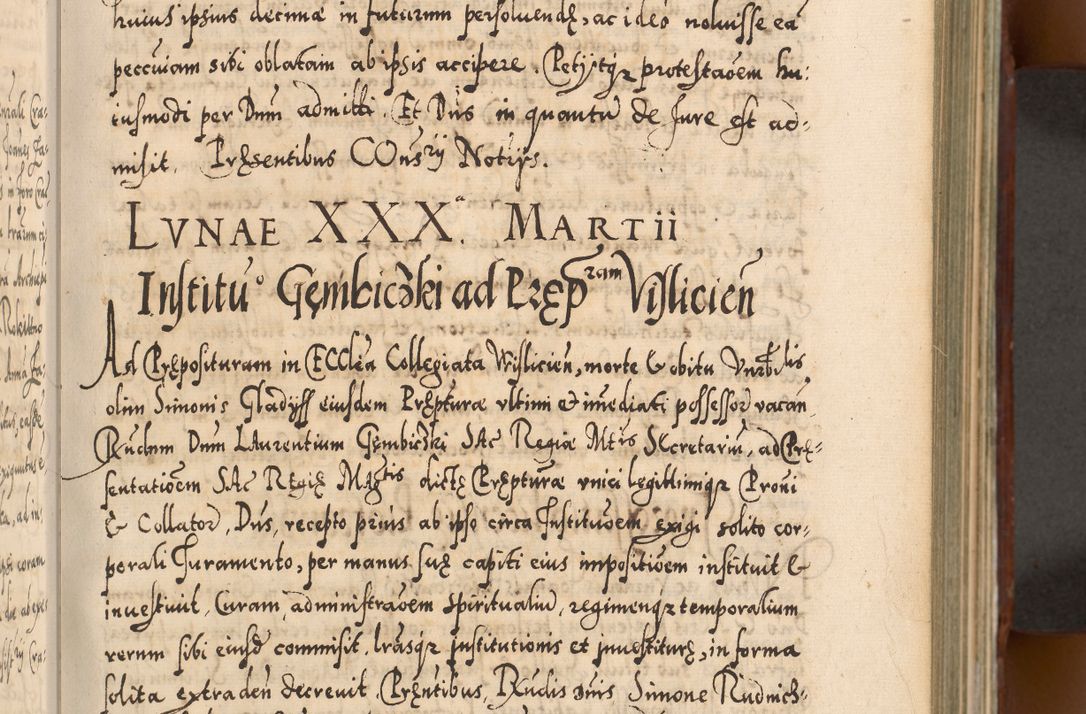 huius ipsius decimæ in futurum persoluendę, ac ideo noluisse eā
peccuiam sibi oblatam ab ipsis accipere. Petijtqz protestaōem hu:
iusmodi per Dnm admitti. Et Dns in quantū de Jure est ad:
misit. Pręsentibus COnsrij Notrijs.
LVNAE XXXa. MARTii
Institūo Gęmbicżki ad Prępram Vislicień
Ad Pręposituram in ECClēa Collegiata Wislicień, morte & obitu Vnrblis
olim Simonis Gladijss eiusdem Pręptura vltimi et imēdiati possessor vacan
Rńdum Dnm LAurentium Gęmbicżki SAc Regiæ Mtis SEcretariū, ad Prę:
sentatioēm SAc REgię Magtis dictę Pręptura vnici legittimiqz Proni
& Collator, Dns, recepto prius ab ipso circa Institutioēm exigi solito cor:
porali Juramento, per manus suę capiti eius impositioēm instituit &
inuestiuit, Curam administraōem spiritualiū, regimenqz temporalium
rerum sibi eiusd commisit, lrasqz institutionis et inuestiturę, in forma
solita extraden decreuit. Pręntibus, RNudis dnis Simone Rudnich: